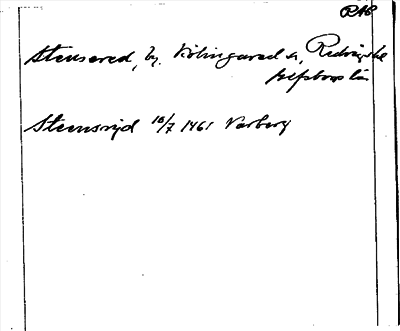 RAP
Stensered, by. Kölingared sn, Redvägs hd
Älfsborgs län
Stensryd 18/7 1461 Varberg